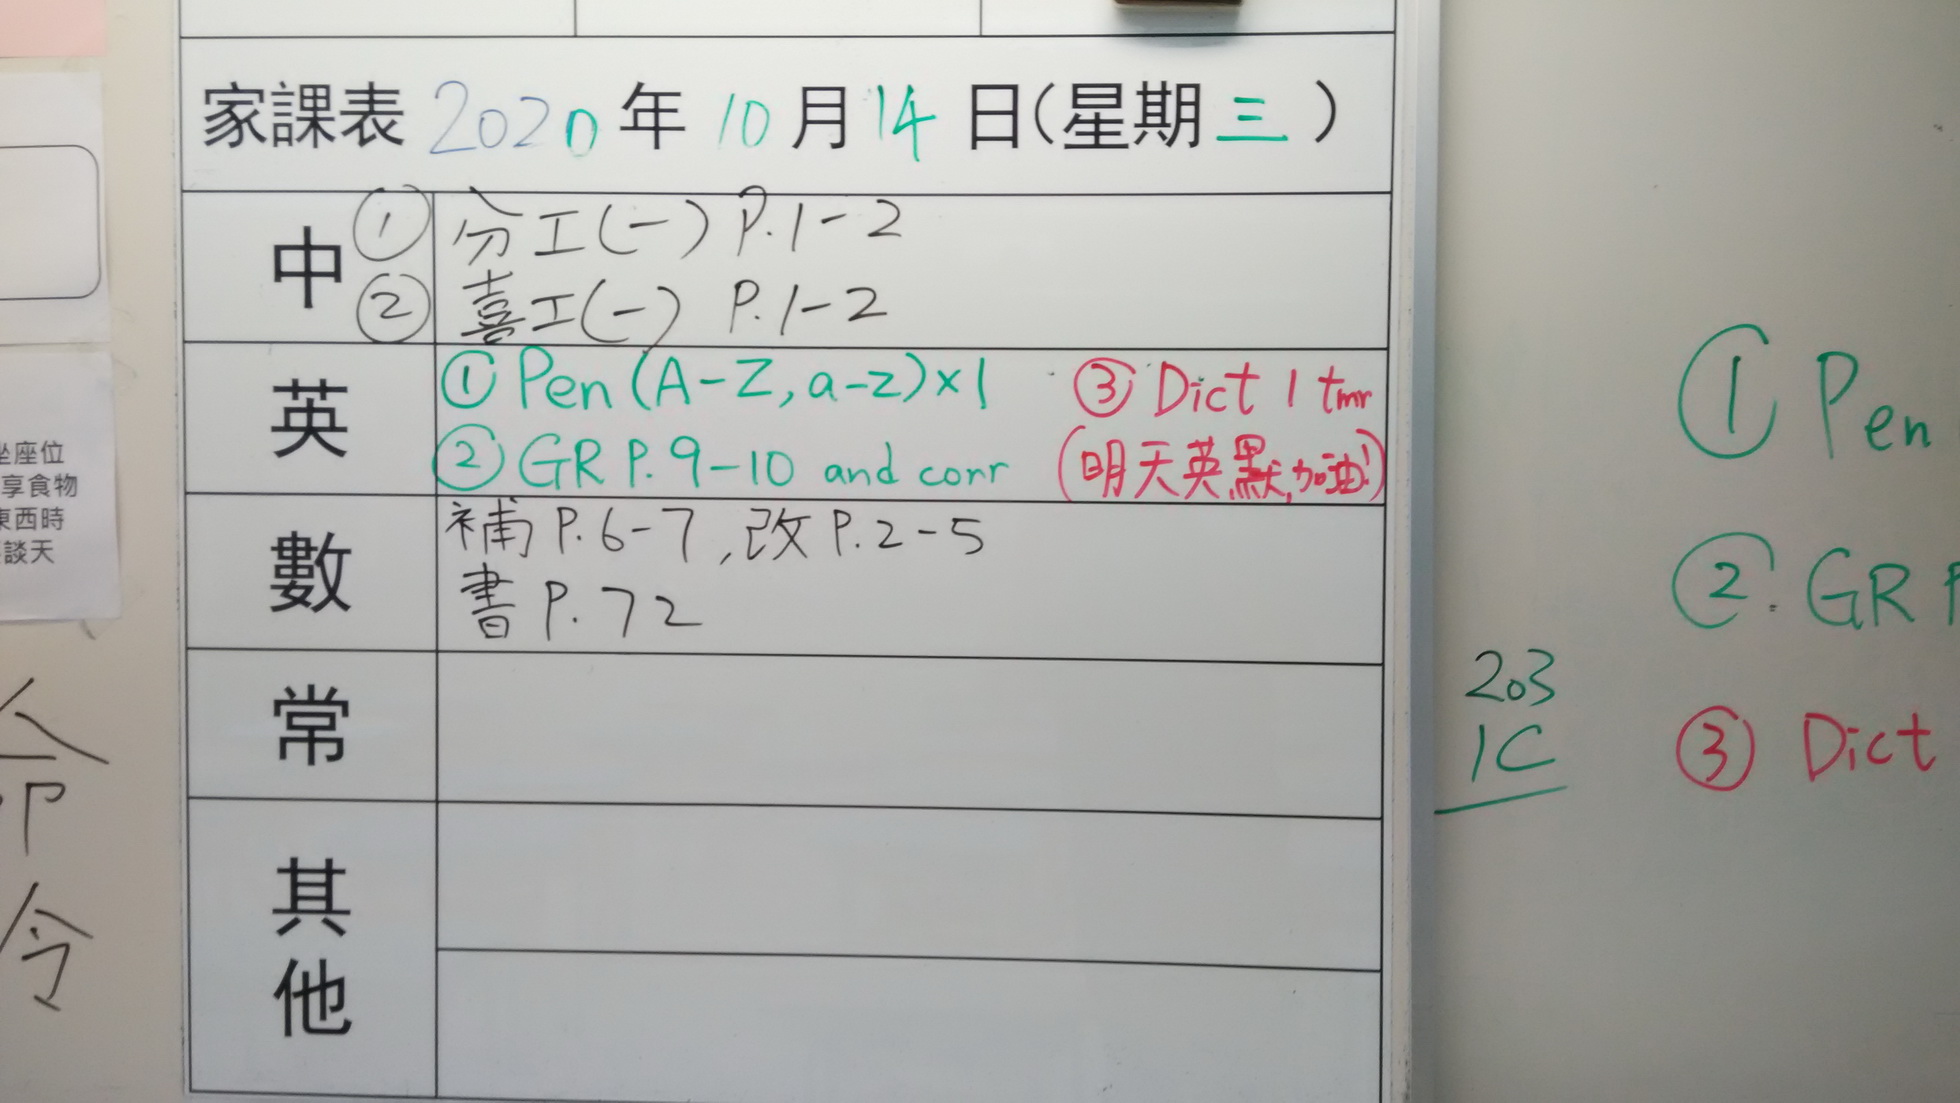 家課表 2020 年 10 月 14 日(星期三)
中 ① 分工(一) P.1-2
② 喜工(一) P.1-2
英 ① Pen (A-Z, a-z)×1 ③ Dict 1 tmr
② GR P.9-10 and corr (明天英默,加油!)
數 補 P.6-7, 改 P.2-5
書 P.72
常
其他
坐座位
享食物
東西時
談天
命
令
203
1C
① Pen
② GR P
③ Dict